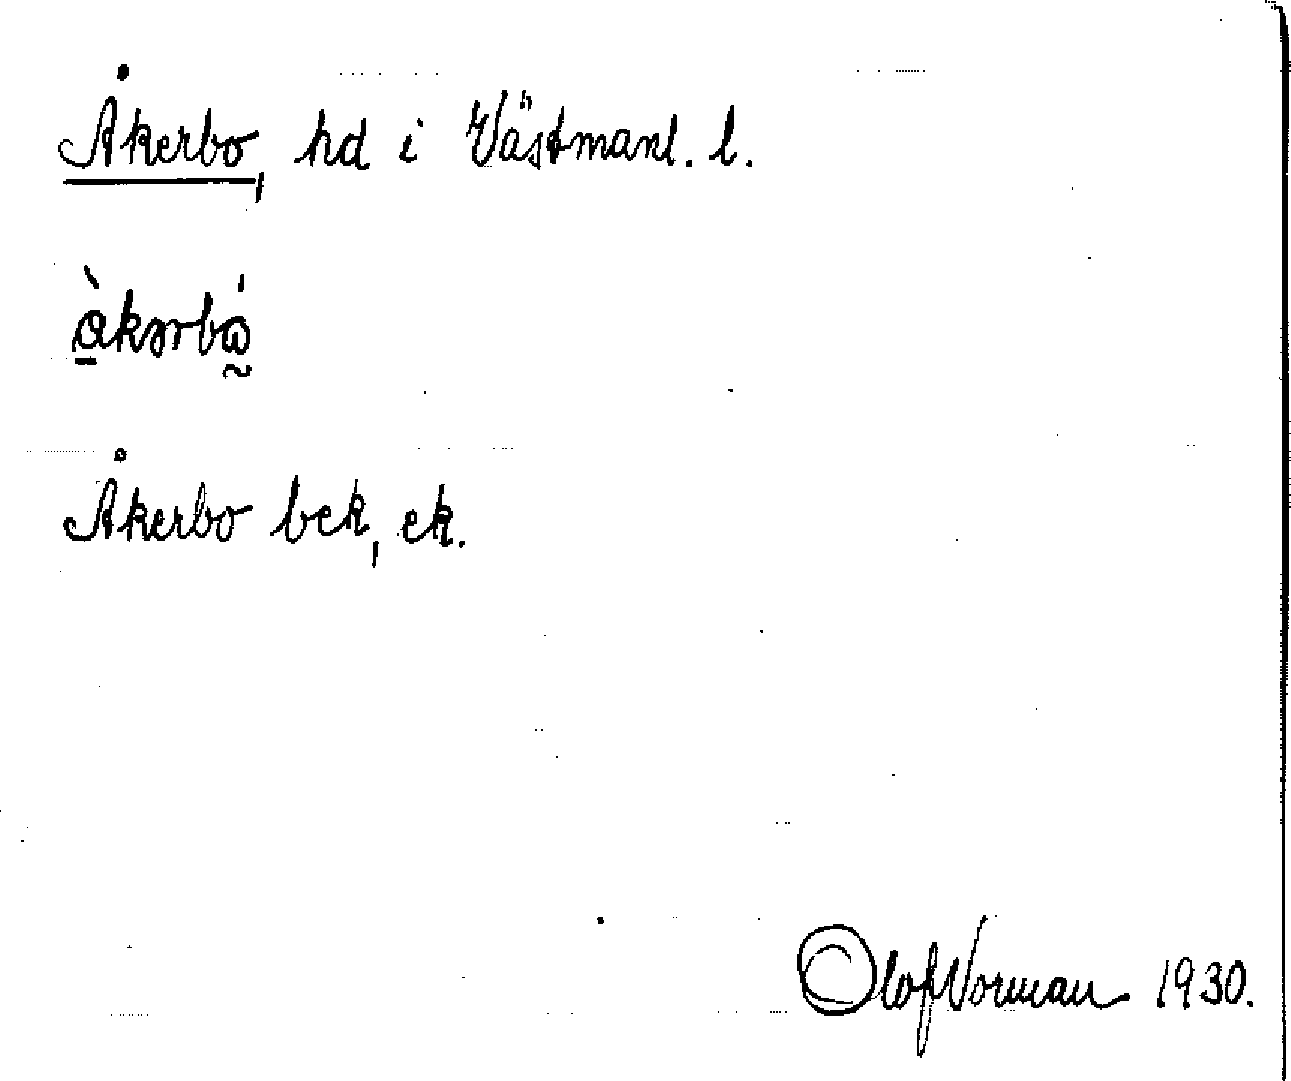 Åkerbo, hd i Västmanl. l.
Åkerbo bek, ek.
Olof Norman 1930.